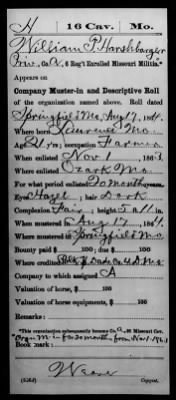 H 16 Cav. Mo.
William P. Harshbarger
Priv., Co. A, 6 Reg't Enrolled Missouri Militia.*
Appears on
Company Muster-in and Descriptive Roll
of the organization named above. Roll dated
Springfield Mo, Aug 17, 1864.
Where born Lawrence Mo.
Age 21 y'rs; occupation Farmer
When enlisted Nov 1, 186
Where enlisted Ozark Mo.
For what period enlisted 20 months years.
Eyes Hazel; hair Dark
Complexion Fair; height 5 ft. 11 in.
When mustered in Aug 17, 1864.
Where mustered in Springfield Mo
Bounty paid $ 100; due $ 100
Where credited
Company to which assigned A
Valuation of horse, $ 100
Valuation of horse equipments, $ 100
Remarks:
*This organization subsequently became Co. A, 16 Missouri Cav.
Org. M-in for 20 months from Nov 1
Book mark:
(356d) Copyist.